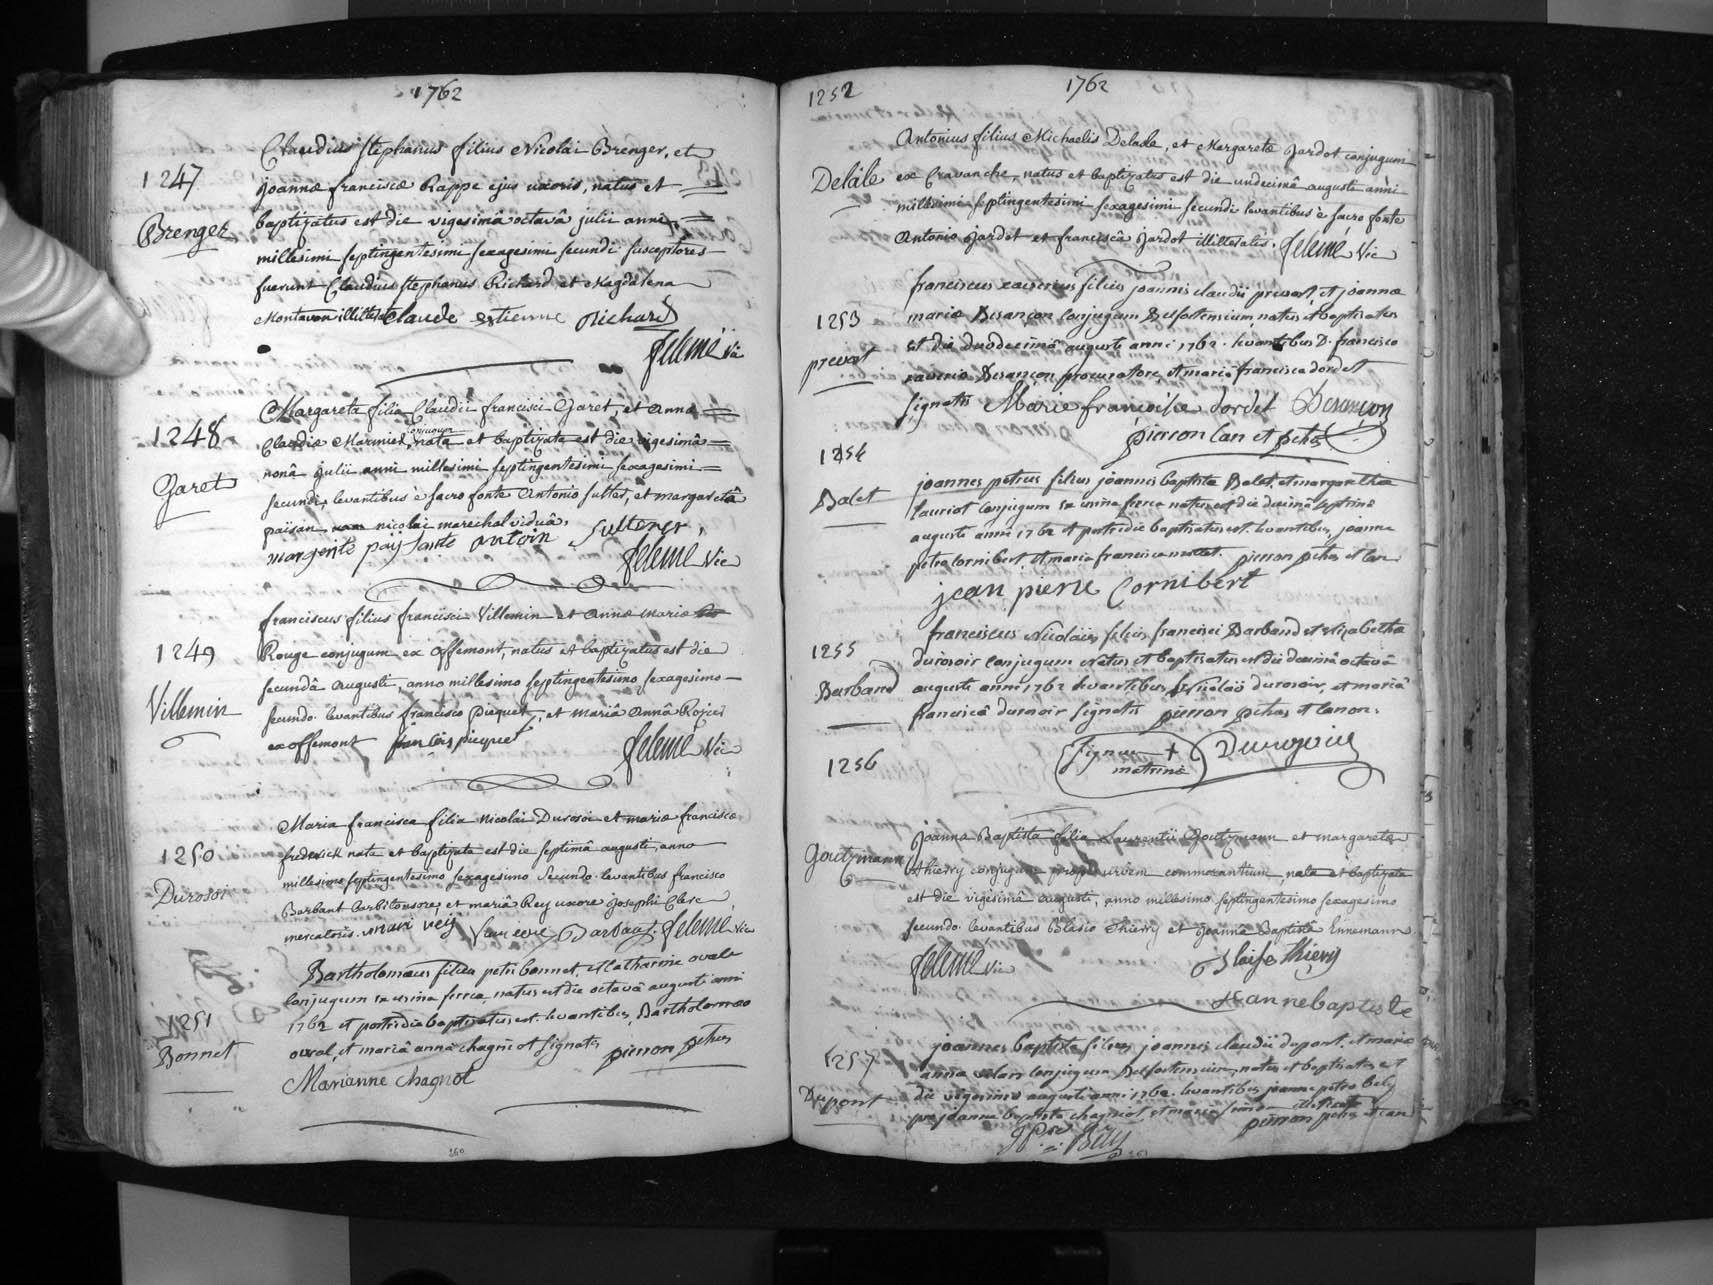 1762
1247
Brenger
Claudius Stephanus filius Nicolai Brenger, et
Joannæ franciscæ Rappe ejus uxoris, natus et
baptizatus est die vigesimâ octavâ julii anni
millesimi septingentesimi sexagesimi secundi susceptores
fuerunt Claudius Stephanus Richard et Magdalena
Montavon illitterata Claude estienne Richard
felemé vic
1248
Garet
Margareta filia Claudii francisci Garet, et Annæ
Claudiæ Marmier conjugum nata et baptizata est die vigesimâ
nonâ Julii anni millesimi septingentesimi sexagesimi
secundi, levantibus è sacro fonte Antonio sutter, et margaretâ
païsan nicolai marechal viduâ,
margerite paÿsante antoin Sutterer,
feleme vic
1249
Villemin
franciscus filius francisci Villemin et Annæ mariæ
Rouge conjugum ex Offemont, natus et baptizatus est die
secundâ Augusti, anno millesimo septingentesimo sexagesimo
secundo. levantibus francisco Piequet, et mariâ Annâ
ex offemont piequet
felemé vic
1250
Durosoi
Maria francisca filia nicolai Durosoi et mariæ franciscæ
frederich nata et baptizata est die septimâ augusti, anno
millesimo septingentesimo sexagesimo secundo. levantibus francisco
Barbant barbitonsore, et mariâ Rey uxore Josephi Clerc
mercatoris. mari reÿ Barbaut. feleme vic
1251
Bonnet
Bartholomæus filius petri bonnet, et Catharinæ
Conjugum ex usina ferrea, natus est die octavâ augusti anni
1762 et postridie baptisatus est. levantibus, Bartholomæo
et mariâ annâ chagnot signatis pierron
Marianne chagnot
260
1252
1762
Delâle
Antonius filius Michaelis Delade, et Margaretæ Jardot conjugum
ex Cravanche, natus et baptizatus est die undecimâ augusti anni
millesimi septingentesimi sexagesimi secundi levantibus è sacro fonte
Antonio Jardot et franciscâ Jardot illitteratis. felemé vic
1253
prevot
franciscus xaverius filius joannis claudii prevost, et joannæ
mariæ Besançon conjugum Belfortensium, natus et baptisatus
est die duodecimâ augusti anni 1762. levantibus D. francisco
xaverio Besançon procuratore, et mariâ francisca dordet
signatis Marie francoise dordet Besançon
pierron can et
1254
Balet
joannes petrus filius joannis baptistæ Balet, et margarethæ
Lauriot conjugum ex usina ferrea natus est die decimâ septimâ
augusti anni 1762 et postridie baptisatus est. levantibus, joanne
petro cornibert, et maria francisca pierron
jean pierre Cornibert
1255
Barband
franciscus Nicolaüs filius francisci Barband et elisabethæ
durosoir conjugum natus et baptisatus est die decimâ octavâ
augusti anni 1762 levantibus, Nicolaö durosoir, et mariâ
franciscâ durosoir signatis pierron et canon.
signum + matrinæ
1256
Goutzmann
Joanna Baptista filia Laurentii Goutzmann et margaretæ
Thierry conjugum propè urbem commorantium, nata et baptizata
est die vigesimâ augusti, anno millesimo septingentesimo sexagesimo
secundo. levantibus Blasio Thierry et Joannâ Baptistâ Ennemann
felemé vic
Blaise Thiery
Jeannebaptiste
1257
Dupont
joannes baptista filius joannis claudii dupont. et mariæ
anna conjugum Belfortensium, natus et baptisatus est
die vigesimâ augusti anni 1762. levantibus joanne petro Bely
pro joanne baptista chagniot, et maria
pierron
Bely